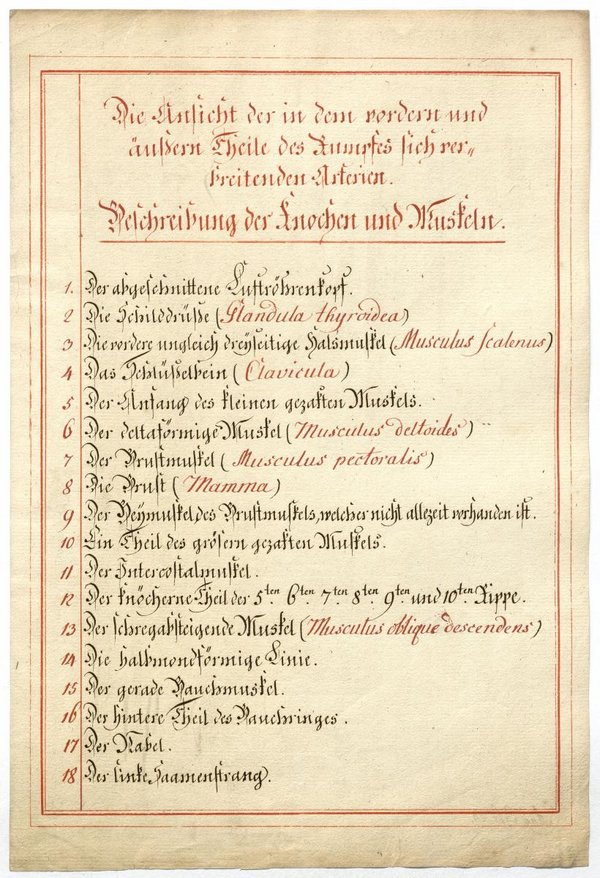 Die Ansicht der in dem vordern und
äußern Theile des Rumpfes sich ver„
breitenden Arterien.
Beschreibung der Knochen und Muskeln.
1. Der abgeschnittene Luftröhrenkopf.
2 Die Schilddrüße (Glandula thyroidea)
3 Die vordere ungleich dreyseitige Halsmuskel (Musculus Scalenus)
4 Das Schlüßelbein (Clavicula)
5 Der Anfang des kleinen gezakten Muskels.
6 Der deltaförmige Muskel (Musculus deltoides)
7 Der Brustmuskel (Musculus pectoralis)
8 Die Brust (Mamma)
9 Der Beymuskel des Brustmuskels, welcher nicht allezeit vorhanden ist.
10 Ein Theil des grösern gezakten Muskels.
11 Der Intercostalmuskel.
12 Der knöcherne Theil der 5ten 6ten 7ten 8ten 9ten und 10ten Rippe.
13 Der schregabsteigende Muskel (Musculus oblique descendens)
14 Die halbmondförmige Linie.
15 Der gerade Bauchmuskel.
16 Der hintere Theil des Bauchringes.
17 Der Nabel.
18 Der linke Saamenstrang.